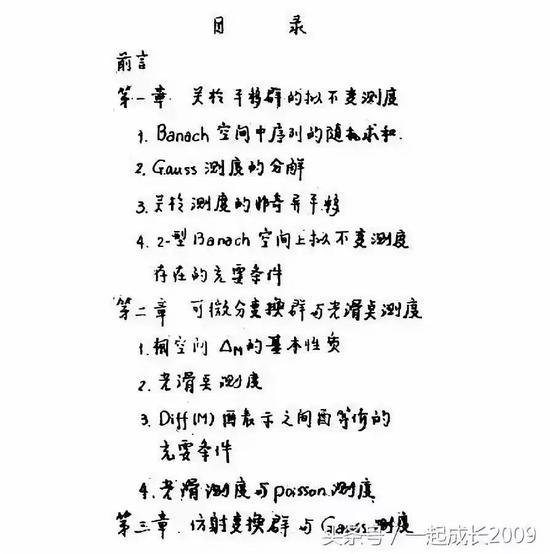 目 录
前言
第一章 关于平移群的拟不变测度
1. Banach 空间中序列的随机求和.
2. Gauss 测度的分解
3. 关于测度的非奇异平移
4. 2-型 Banach 空间上拟不变测度
存在的充要条件
第二章 可微分变换群与光滑测度
1. 空间 ΔM 的基本性质
2. 光滑测度
3. Diff(M) 表示之间等价的
充要条件
4. 光滑测度与 poisson 测度
第三章 仿射变换群与 Gauss 测度
头条号/一起成长2009